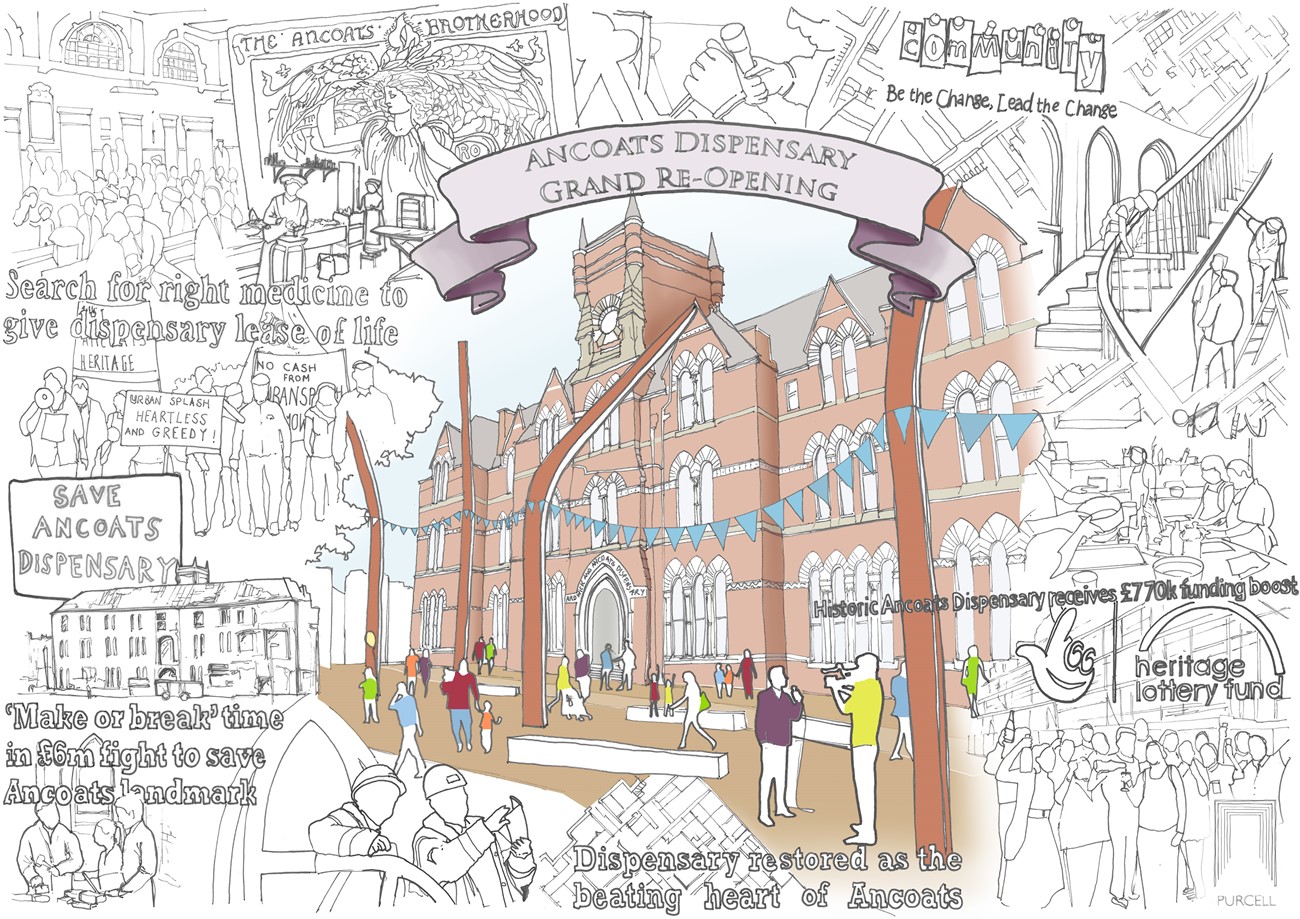 THE ANCOATS BROTHERHOOD
community
Be the Change, Lead the Change
ANCOATS DISPENSARY
GRAND RE-OPENING
Search for right medicine to
give dispensary lease of life
HERITAGE
NO CASH
FROM
URBAN SPLASH
HEARTLESS
AND GREEDY!
SAVE
ANCOATS
DISPENSARY
ANCOATS DISPENSARY
Historic Ancoats Dispensary receives £770k funding boost
heritage
lottery fund
'Make or break' time
in £6m fight to save
Ancoats landmark
Dispensary restored as the
beating heart of Ancoats
PURCELL